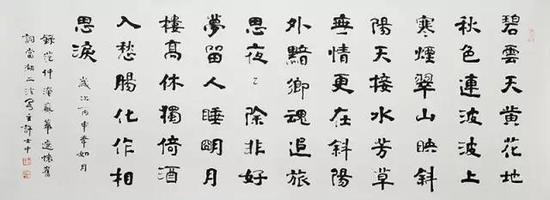 碧雲天黃花地
秋色連波波上
寒煙翠山映斜
陽天接水芳草
無情更在斜陽
外黯鄉魂追旅
思夜〻除非好
夢留人睡明月
樓高休獨倚酒
入愁腸化作相
思淚
歲次丙申如月
錄范仲淹蘇幕遮懷舊
詞當湖三主許士中